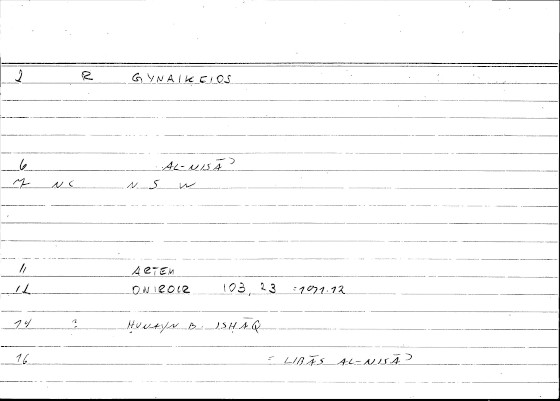 2 R GYNAIKEIOS
6 AL-NISĀʾ
7 NC N S W
11 ARTEM
12 ONIROCR 103, 23 = 191.12
14 ? ḤUNAYN B. ISḤĀQ
16 = LIBĀS AL-NISĀʾ